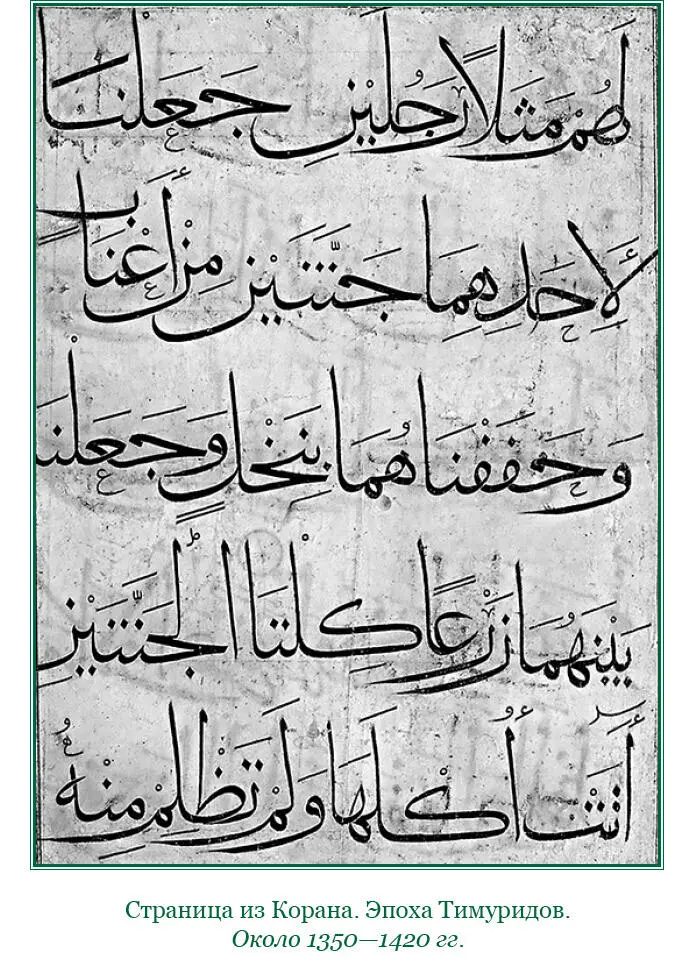 لَهُمْ مَثَلًا رَجُلَيْنِ جَعَلْنَا
لِأَحَدِهِمَا جَنَّتَيْنِ مِنْ أَعْنَابٍ
وَحَفَفْنَاهُمَا بِنَخْلٍ وَجَعَلْنَا
بَيْنَهُمَا زَرْعًا كِلْتَا الْجَنَّتَيْنِ
آتَتْ أُكُلَهَا وَلَمْ تَظْلِمْ مِنْهُ
Страница из Корана. Эпоха Тимуридов.
Около 1350—1420 гг.